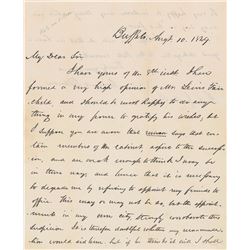 Buffalo, Aug't 10. 1849
My Dear Sir,
I have yours of the 8th inst. I have
formed a very high opinion of Mr. Lewis Fair
child, and should be most happy to do any-
thing in my power to gratify his wishes, but
I suppose you are aware that rumor says that cer-
tain members of the cabinet, aspire to the succession
and are weak enough to think I may be
in their way; and hence that it is necessary
to degrade me by refusing to appoint my friends to
office. This may or may not be so, but the appoint-
ments in my own city, strongly corroborate this
suspicion. It is therefore doubtful whether my recommenda-
tion would aid him, but if he thinks it will I shall